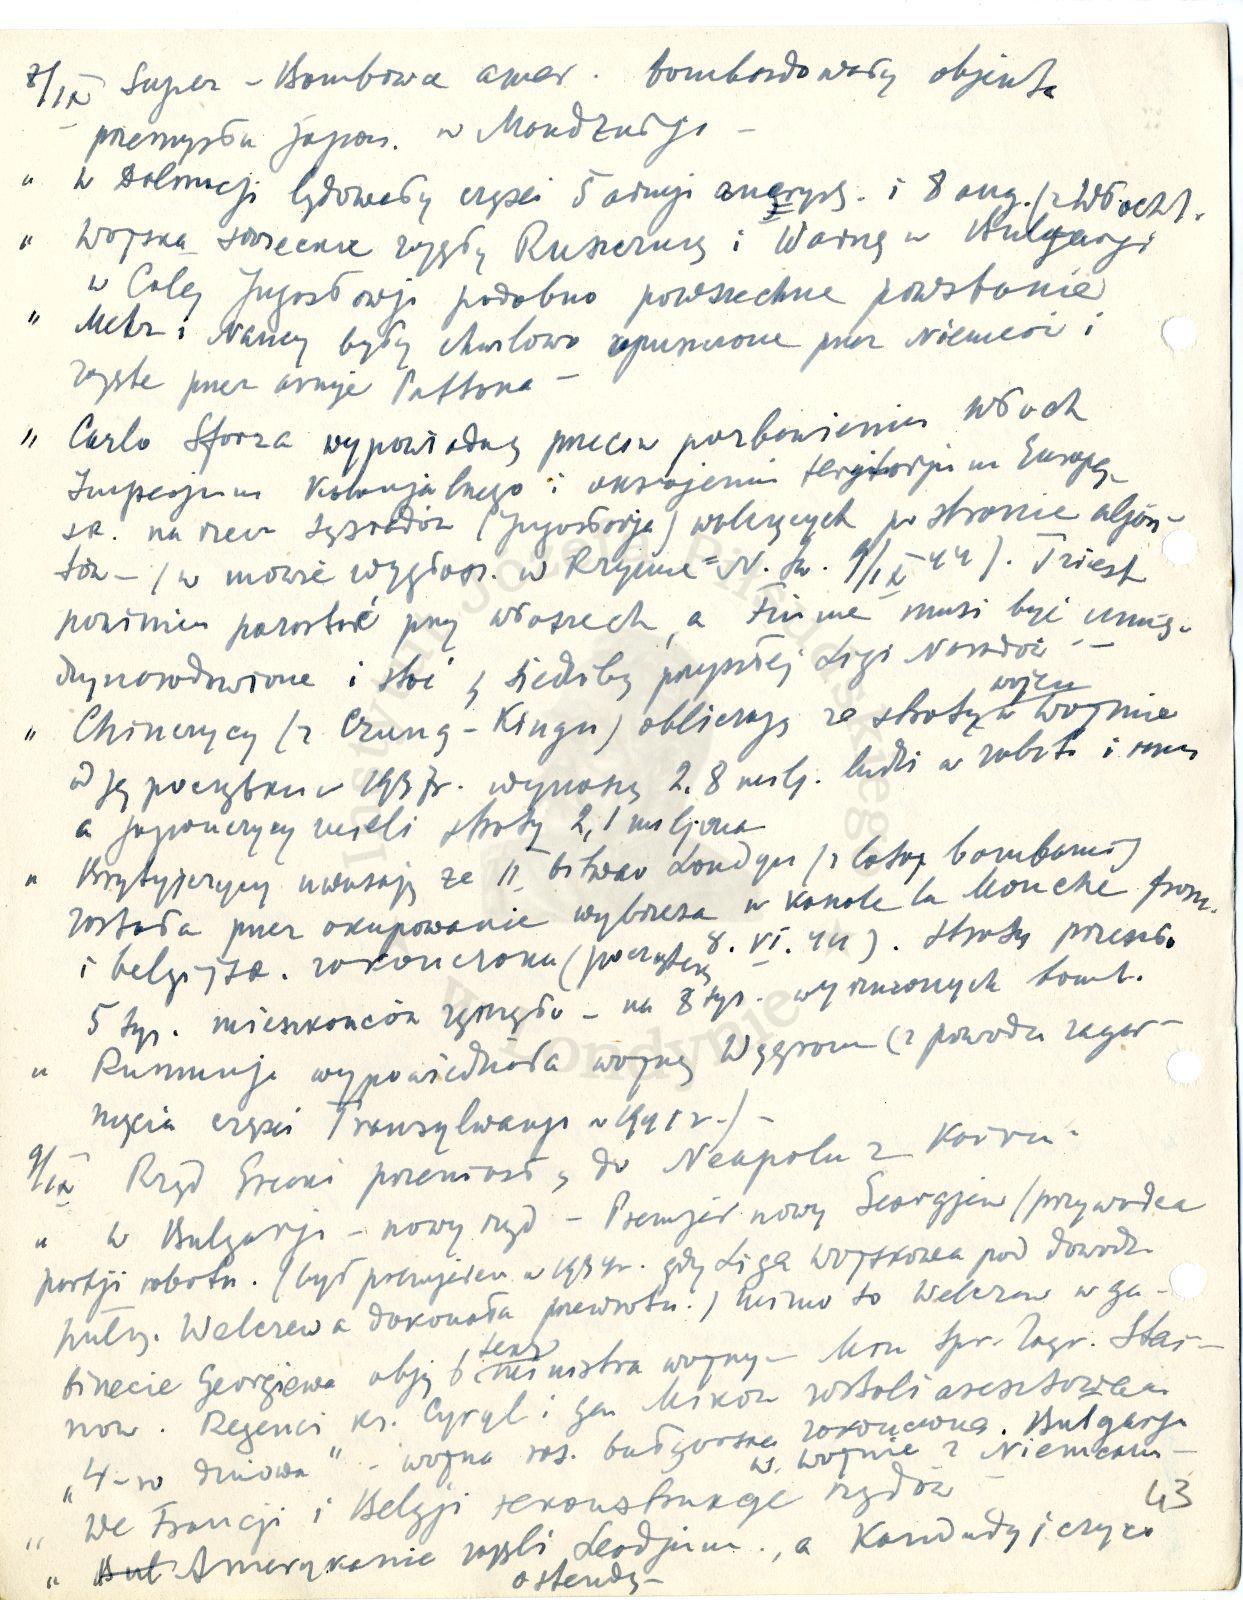 8/IX Super-Bombowce amer. bombardowały objekta
przemysłu japoń. w Mandżurji –
" W Dalmacji lądowały części 5 armji ameryk. i 8 ang. (z Włoch).
" Wojska sowieckie zajęły Ruszczuk i Warnę w Bulgarji
w Całej Jugosłowji podobno powszechne powstanie
" Metz i Nancy były chwilowo opuszczone przez Niemców i
zajęte przez armję Pattona –
" Carlo Sforza wypowiada się przeciw pozbawieniu Włoch
Imperjum Kolonjalnego i okrojeniu terytorjum Europej-
sk. na rzecz sąsiadów (Jugosławja) walczących po stronie aljan-
tów – (w mowie wygłosz. w Rzymie = N. Św. 9/IX 44). Triest
powinien pozostać przy Włoszech, a Fiume musi być umię-
dzynarodowione i stać się siedzibą przyszłej Ligi Narodów –
" Chińczycy (z Czung-Kingu) obliczają że straty w wojnie
od jej początku w 1937r. wynoszą 2.8 milj. ludzi w zabit. i
a japończycy mieli straty 2,1 miljona
" Brytyjczycy uważają że II bitwa o Londyn (z latając. bombami)
została przez okupowanie wybrzeża w kanale la Manche franc.
i belgijsk. zakończona (początek 8.VI.44). Straty przeszło
5 tys. mieszkańców zginęło – na 8 tys. wyrzuconych bomb.
" Rumunja wypowiedziała wojnę Węgrom (z powodu zagar-
nięcia części Transylwanji w 1941 r.) –
9/IX Rząd Grecki przeniósł się do Neapolu z Kairu.
" W Bulgarji – nowy rząd – Premjer nowy Georgjew (przywódca
partji robotn. (był premjerem w 1934r. gdy Liga Wojskowa pod dowódz.
pułk. Welczewa dokonała przewrotu.) mimo to Welczew w ga-
binecie Georgiewa objął tekę ministra wojny – Min Spr. Zagr. Stai-
now. Regenci ks. Cyryl i gen Mikow zostali aresztowani
" „4-ro dniowa" – wojna ros. bułgarska zakończona. Bulgarja
w wojnie z Niemcami –
" We Francji i Belgji rekonstrukcje rządów –
43
" Bul Amerykanie zajęli Leodjum., a Kanadyjczycy
Ostendę –
Instytut Józefa Piłsudskiego
w Londynie